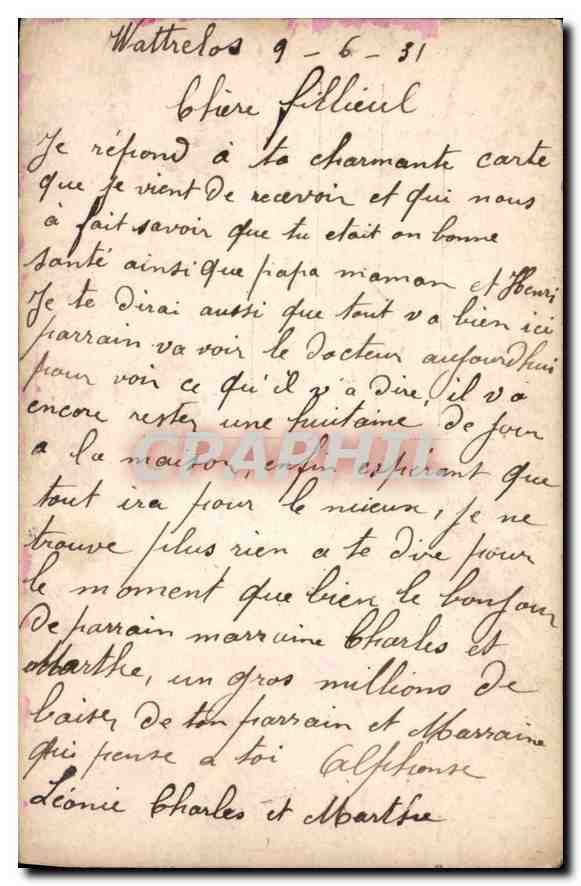 Wattrelos 9 - 6 - 31
Chère fillieul
Je répond à ta charmante carte
que je vient de recevoir et qui nous
à fait savoir que tu etait on bonne
santé ainsi que papa maman et Henri
Je te dirai aussi que tout va bien ici
parrain va voir le docteur aujourdhui
pour voir ce qu'il v a dire, il va
encore rester une huitaine de jour
a la maison, enfin espérant que
CPARHTI
tout ira pour le mieux, je ne
trouve plus rien a te dire pour
le moment que bien le bonjour
de parrain marraine Charles et
Marthe, un gros millions de
baiser de ton parrain et Marraine
qui pense a toi Alphonse
Léonie Charles et Marthe